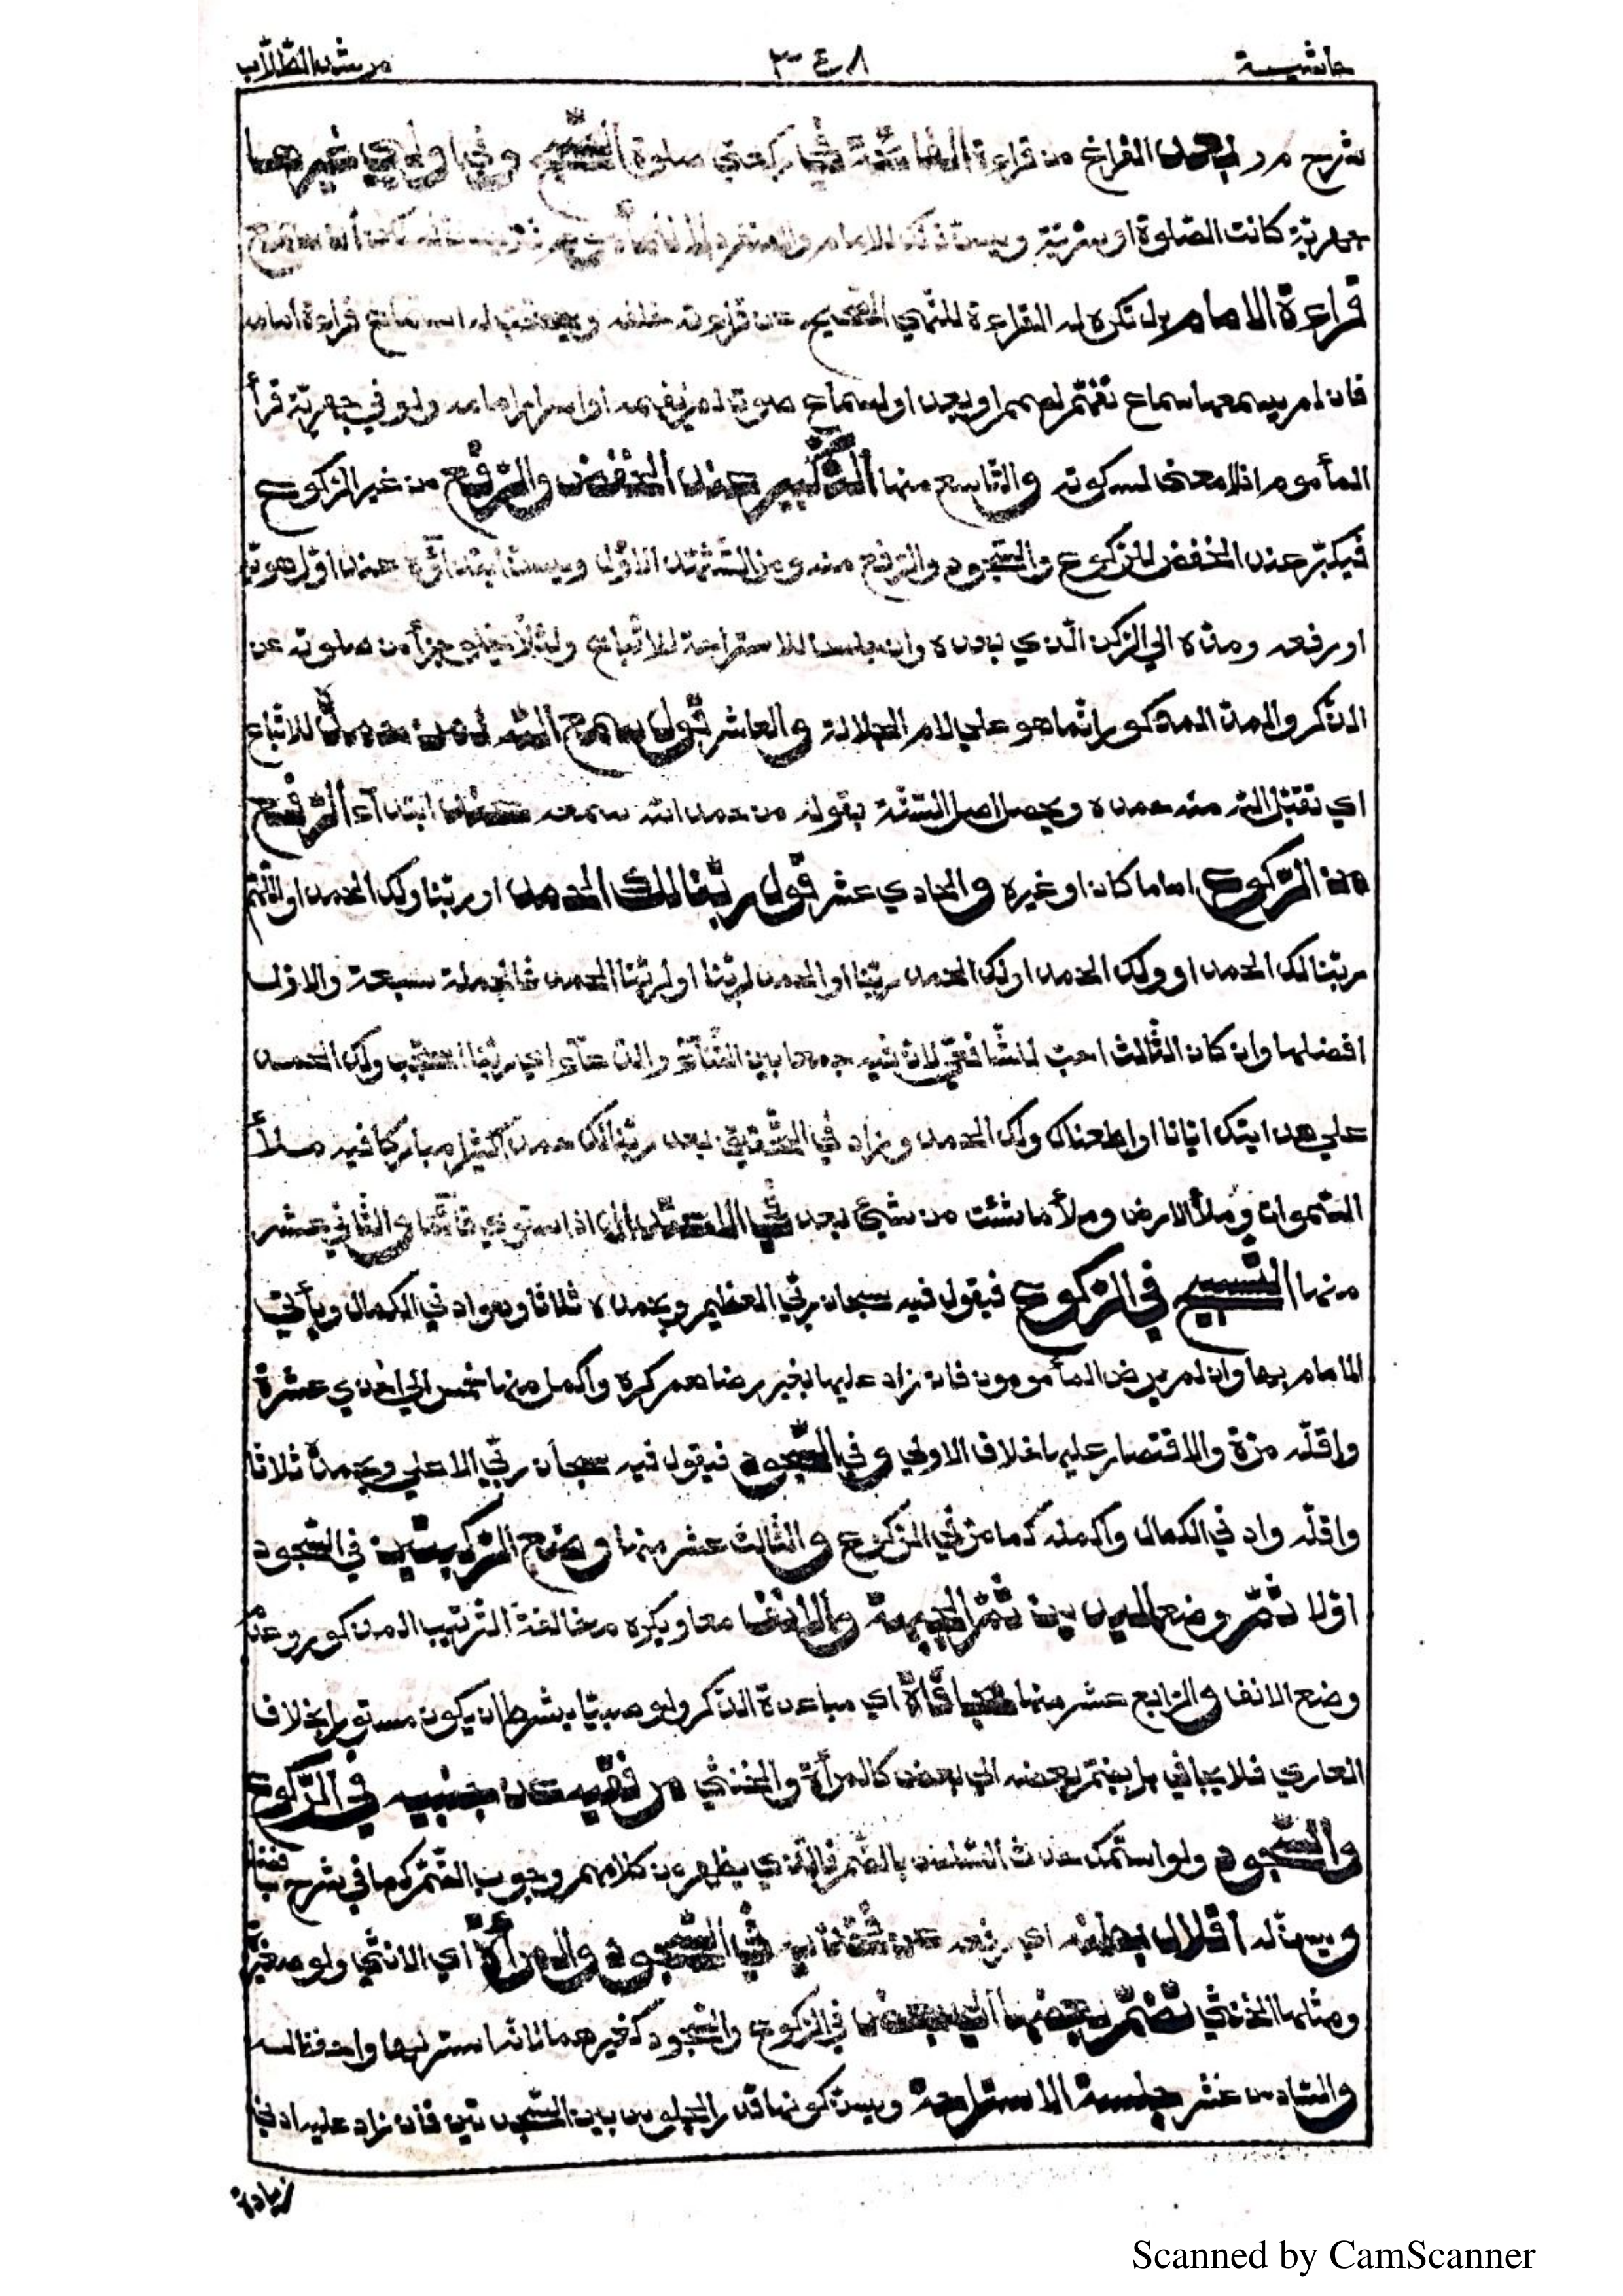 حاشية ٣٤٨ مرشد الطلاب
شرح م ر بعد الفراغ من قراءة الفاتحة في ركعتي صلوة الصبح وفي اولي غيرها
جهرية كانت الصلوة او سرية ويسن ذلك للامام والمنفرد
قراءة الامام بل تكره له القراءة للنهي الصحيح عن قراءته خلفه ويستحب له استماع قراءة امامه
فان لم يسمعها سماع تفهم لصمم او بعد او لسماع صوت لم يفهمه او اسرار امامه ولو في جهرية قرأ
المأموم اذ لا معني لسكوته والتاسع منها التكبير عند الخفض والرفع من غير الركوع
فيكبر عند الخفض للركوع والسجود والرفع منه ومن التشهد الاول ويسن ابتداؤه عند اول هويه
او رفعه ومده الي الركن الذي بعده وان جلس للاستراحة للاتباع ولئلا يخلو جزأ من صلوته عن
الذكر والمد المذكور انما هو علي لام الجلالة والعاشر قول سمع الله لمن حمده للاتباع
اي تقبل الله منه حمده ويحصل اصل السنة بقوله من حمد الله سمعه عند ابتدآء الرفع
من الركوع اماما كان او غيره والحادي عشر قول ربنا لك الحمد او ربنا ولك الحمد او اللهم
ربنا لك الحمد او ولك الحمد او لك الحمد ربنا او الحمد لربنا او لربنا الحمد فالجملة سبعة والاول
افضلها وان كان الثالث احب للشافعي لان فيه جمعا بين الثنآء والدعآء اي ربنا استجب ولك الحمد
علي هدايتك ايانا او اطعناك ولك الحمد وزاد في التحقيق بعد ربنا لك حمدا كثيرا مباركا فيه ملأ
السموات وملأ الارض وملأ ما شئت من شئ بعد في الاعتدال اذا استوي قائما والثاني عشر
منها التسبيح في الركوع فيقول فيه سبحان ربي العظيم وبحمده ثلاثا وهو ادني الكمال ويأتي
الامام بها وان لم يرض المأمومون فان زاد عليها بغير رضاهم كره واكمل منها خمس الي احدي عشرة
واقله مرة والاقتصار عليها خلاف الاولي وفي السجود فيقول فيه سبحان ربي الاعلي وبحمده ثلاثا
واقله وادني الكمال واكمله كما مر في الركوع والثالث عشر منها وضع الركبتين في السجود
اولا ثم وضع اليدين ثم الجبهة والانف معا ويكره مخالفة الترتيب المذكور وعدم
وضع الانف والرابع عشر منها مجافاة اي مباعدة الذكر ولو صبيا بشرط ان يكون مستورا بخلاف
العاري فلا يجافي بل يضم بعضه الي بعض كالمرأة والخنثي مرفقيه عن جنبيه في الركوع
والسجود ولو استمسك حدث السلس بالضم فالذي يظهر من كلامهم وجوب الضم كما في شرح بافضل
ويسن له اقلال بطنه اي رفعه عن فخذيه في السجود والمرأة اي الانثي ولو صغيرة
ومثلها الخنثي تضم بعضها الي بعض في الركوع والسجود كغيرهما لانه استر لها واحفظ له
والسادس عشر جلسة الاستراحة ويسن كونها قدر الجلوس بين السجدتين فان زاد عليه ادني
زيادة
Scanned by CamScanner